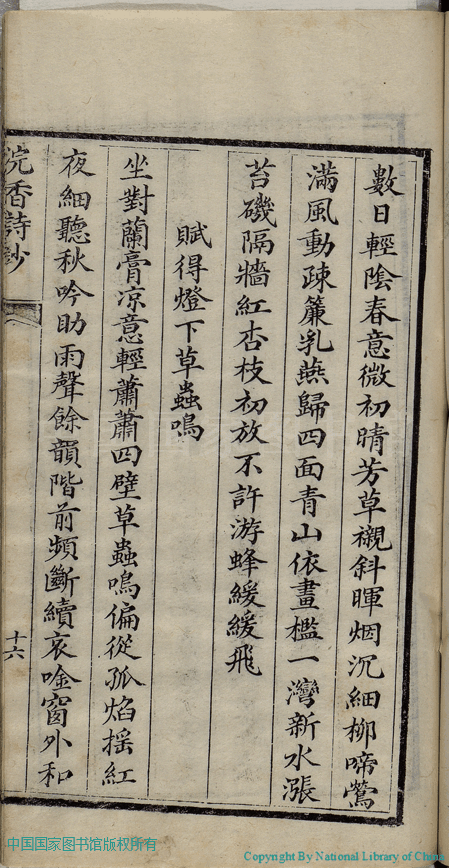 數日輕陰春意微初晴芳草襯斜暉烟沉細柳啼鶯
滿風動疎簾乳燕歸四面青山依畫檻一灣新水漲
苔磯隔牆紅杏枝初放不許游蜂緩緩飛
賦得燈下草蟲鳴
坐對蘭膏凉意輕蕭蕭四壁草蟲鳴偏從孤焰摇紅
夜細聽秋吟助雨聲餘韻階前頻斷續哀唫窗外和
浣香詩鈔
十六
中国国家图书馆版权所有
Copyright By National Library of China